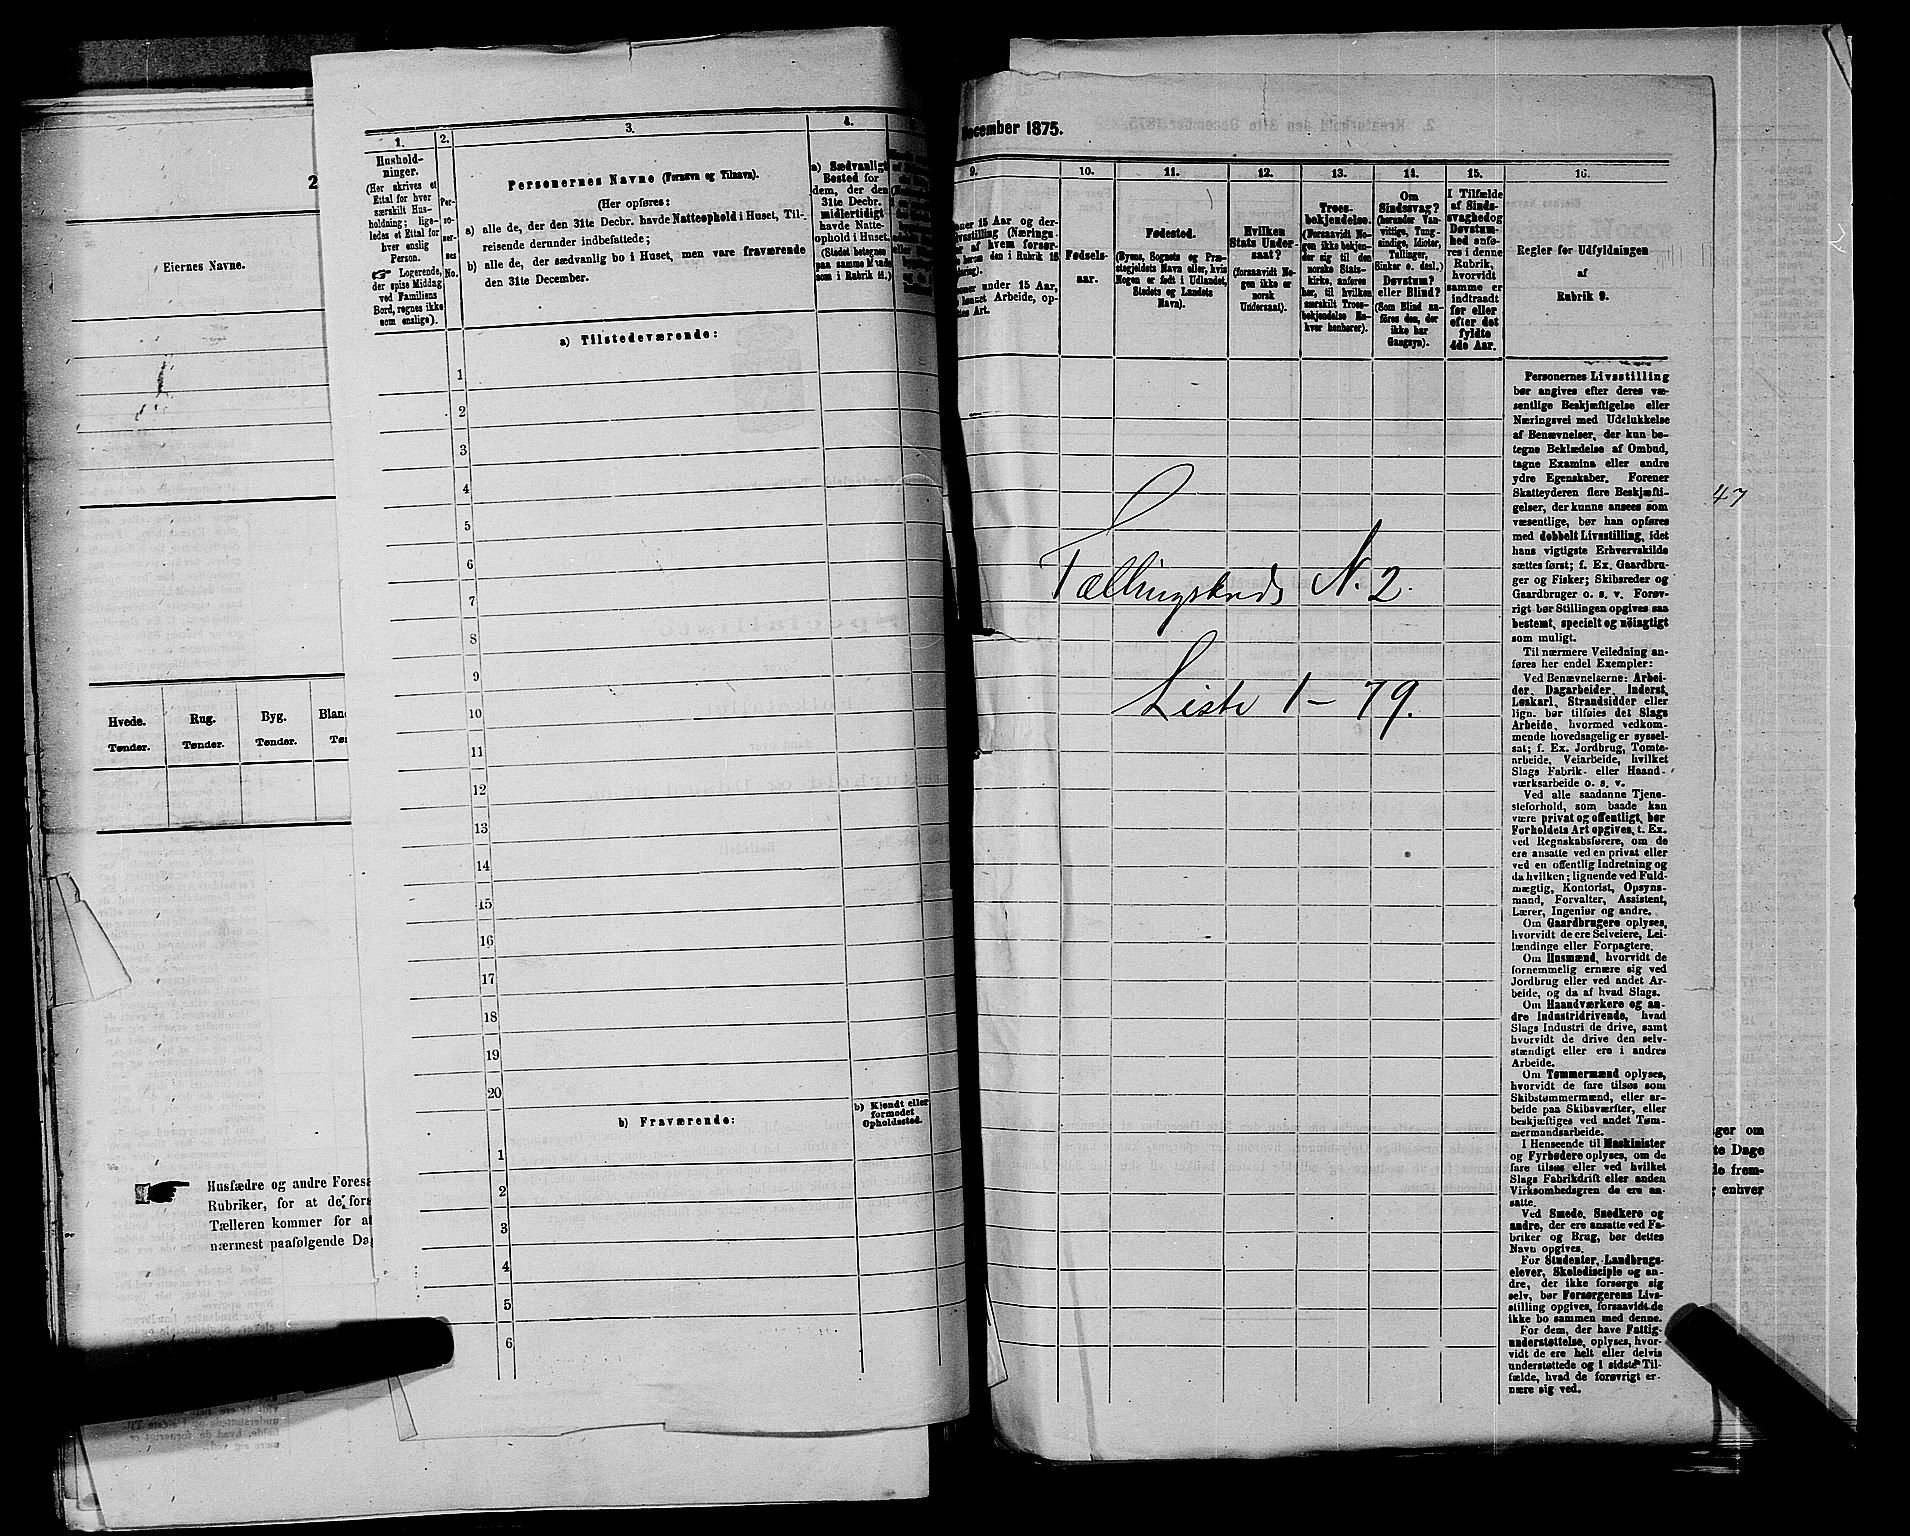 2
Eiernes Navne.
Hvede.
Tønder.
Rug.
Tønder.
Byg.
Tønder.
Husfædre og andre
Rubriker, for at de
Tælleren kommer for at
nærmest paafølgende
1.
Hushold-
ninger.
(Her skrives et
Ettal for hver
særskilt Hus-
holdning; lige-
ledes et Ettal for
hver enslig
Person.
☞ Logerende,
der spise Middag
ved Familiens
Bord, regnes ikke
som enslige).
2.
Per-
so-
ner-
nes
No.
3.
Personernes Navne (Fornavn og Tilnavn).
(Her opføres:
a) alle de, der den 31te Decbr. havde Natteophold i Huset, Til-
reisende derunder indbefattede;
b) alle de, der sædvanlig bo i Huset, men vare fraværende
den 31te December.
4.
a) Sædvanligt
Bosted for
dem, der den
31te Decbr.
midlertidigt
havde Natte-
ophold i Huset.
(Stedet betegnes
paa samme Maade
som i Rubrik 11.)
a) Tilstedeværende:
1
2
3
4
5
6
7
8
9
10
11
12
13
14
15
16
17
18
19
20
b) Fraværende:
b) Kjendt eller
formodet
Opholdssted.
1
2
3
4
5
6
December 1875.
9.
10.
Fødsels-
aar.
11.
Fødested.
(Byens, Sognets og Præ-
stegjeldets Navn eller, hvis
Nogen er født i Udlandet,
Stedets og Landets
Navn).
12.
Hvilken
Stats Under-
saat?
(forsaavidt No-
gen ikke er
norsk
Undersaat).
13.
Troes-
bekjendelse.
(Forsaavidt No-
gen ikke bekjen-
der sig til den
norske Stats-
kirke, anføres
her, til hvilken
særskilt Troes-
bekjendelse En-
hver henhører).
14.
Om
Sindssvag?
(herunder Van-
vittige, Tung-
sindige, Idioter,
Tullinger,
Sinker o. desl.)
Døvstum?
eller Blind?
(Som Blind an-
føres den, der
ikke har
Gangsyn).
15.
I Tilfælde
af Sinds-
svaghedog
Døvstum-
hed anfø-
res i denne
Rubrik,
hvorvidt
samme er
indtraadt
før eller
efter det
fyldte
4de Aar.
16.
Regler for Udfyldningen
af
Rubrik 9.
Personernes Livsstilling
bør angives efter deres væ-
sentlige Beskjæftigelse eller
Næringsvei med Udelukkelse
af Benævnelser, der kun be-
tegne Beklædelse af Ombud,
tagne Examina eller andre
ydre Egenskaber. Forener
Skatteyderen flere Beskjæfti-
gelser, der kunne ansees som
væsentlige, bør han opføres
med dobbelt Livsstilling, idet
hans vigtigste Erhvervskilde
sættes først; f. Ex. Gaardbru-
ger og Fisker; Skibsreder og
Gaardbruger o. s. v. Forøv-
rigt bør Stillingen opgives saa
bestemt, specielt og nøiagtigt
som muligt.
Til nærmere Veiledning an-
føres her endel Exempler:
Ved Benævnelserne: Arbei-
der, Dagarbeider, Inderst,
Løskarl, Strandsidder eller
lign. bør tilføies det Slags
Arbeide, hvormed vedkom-
mende hovedsagelig er syssel-
sat; f. Ex. Jordbrug, Tomte-
arbeide, Veiarbeide, hvilket
Slags Fabrik- eller Haand-
værksarbeide o. s. v.
Ved alle saadanne Tjene-
steforhold, som baade kan
være privat og offentligt, bør
Forholdets Art opgives, t. Ex.
ved Regnskabsførere, om de
ere ansatte ved en privat eller
ved en offentlig Indretning og
da hvilken; lignende ved Fuld-
mægtig, Kontorist, Opsyns-
mand, Forvalter, Assistent,
Lærer, Ingeniør og andre.
Om Gaardbrugere oplyses,
hvorvidt de ere Selveiere, Lei-
lændinge eller Forpagtere.
Om Husmænd, hvorvidt de
fornemmelig ernære sig ved
Jordbrug eller ved andet Ar-
beide, og da af hvad Slags.
Om Haandværkere og an-
dre Industridrivende, hvad
Slags Industri de drive, samt
hvorvidt de drive den selv-
stændigt eller ere i andres
Arbeide.
Om Tømmermænd oplyses,
hvorvidt de fare tilsøs som
Skibstømmermænd, eller ar-
beide paa Skibsværfter, eller
beskjæftiges ved andet Tøm-
mermandsarbeide.
I Henseende til Maskinister
og Fyrbødere oplyses, om de
fare tilsøs eller ved hvilket
Slags Fabrikdrift eller anden
Virksomhedsgren de ere an-
satte.
Ved Smede, Snedkere og
andre, der ere ansatte ved Fa-
briker og Brug, bør dettes
Navn opgives.
For Studenter, Landbrugs-
elever, Skoledisciple og an-
dre, der ikke forsørge sig
selv, bør Forsørgerens Livs-
stilling opgives, forsaavidt de
ikke bo sammen med denne.
For dem, der have Fattig-
understøttelse, oplyses, hvor-
vidt de ere helt eller delvis
understøttede og i sidste Til-
fælde, hvad de forøvrigt er-
nære sig ved.
Tællingskreds N. 2.
Liste 1 – 79.
47
ger om
te Dage
de frem-
enhver